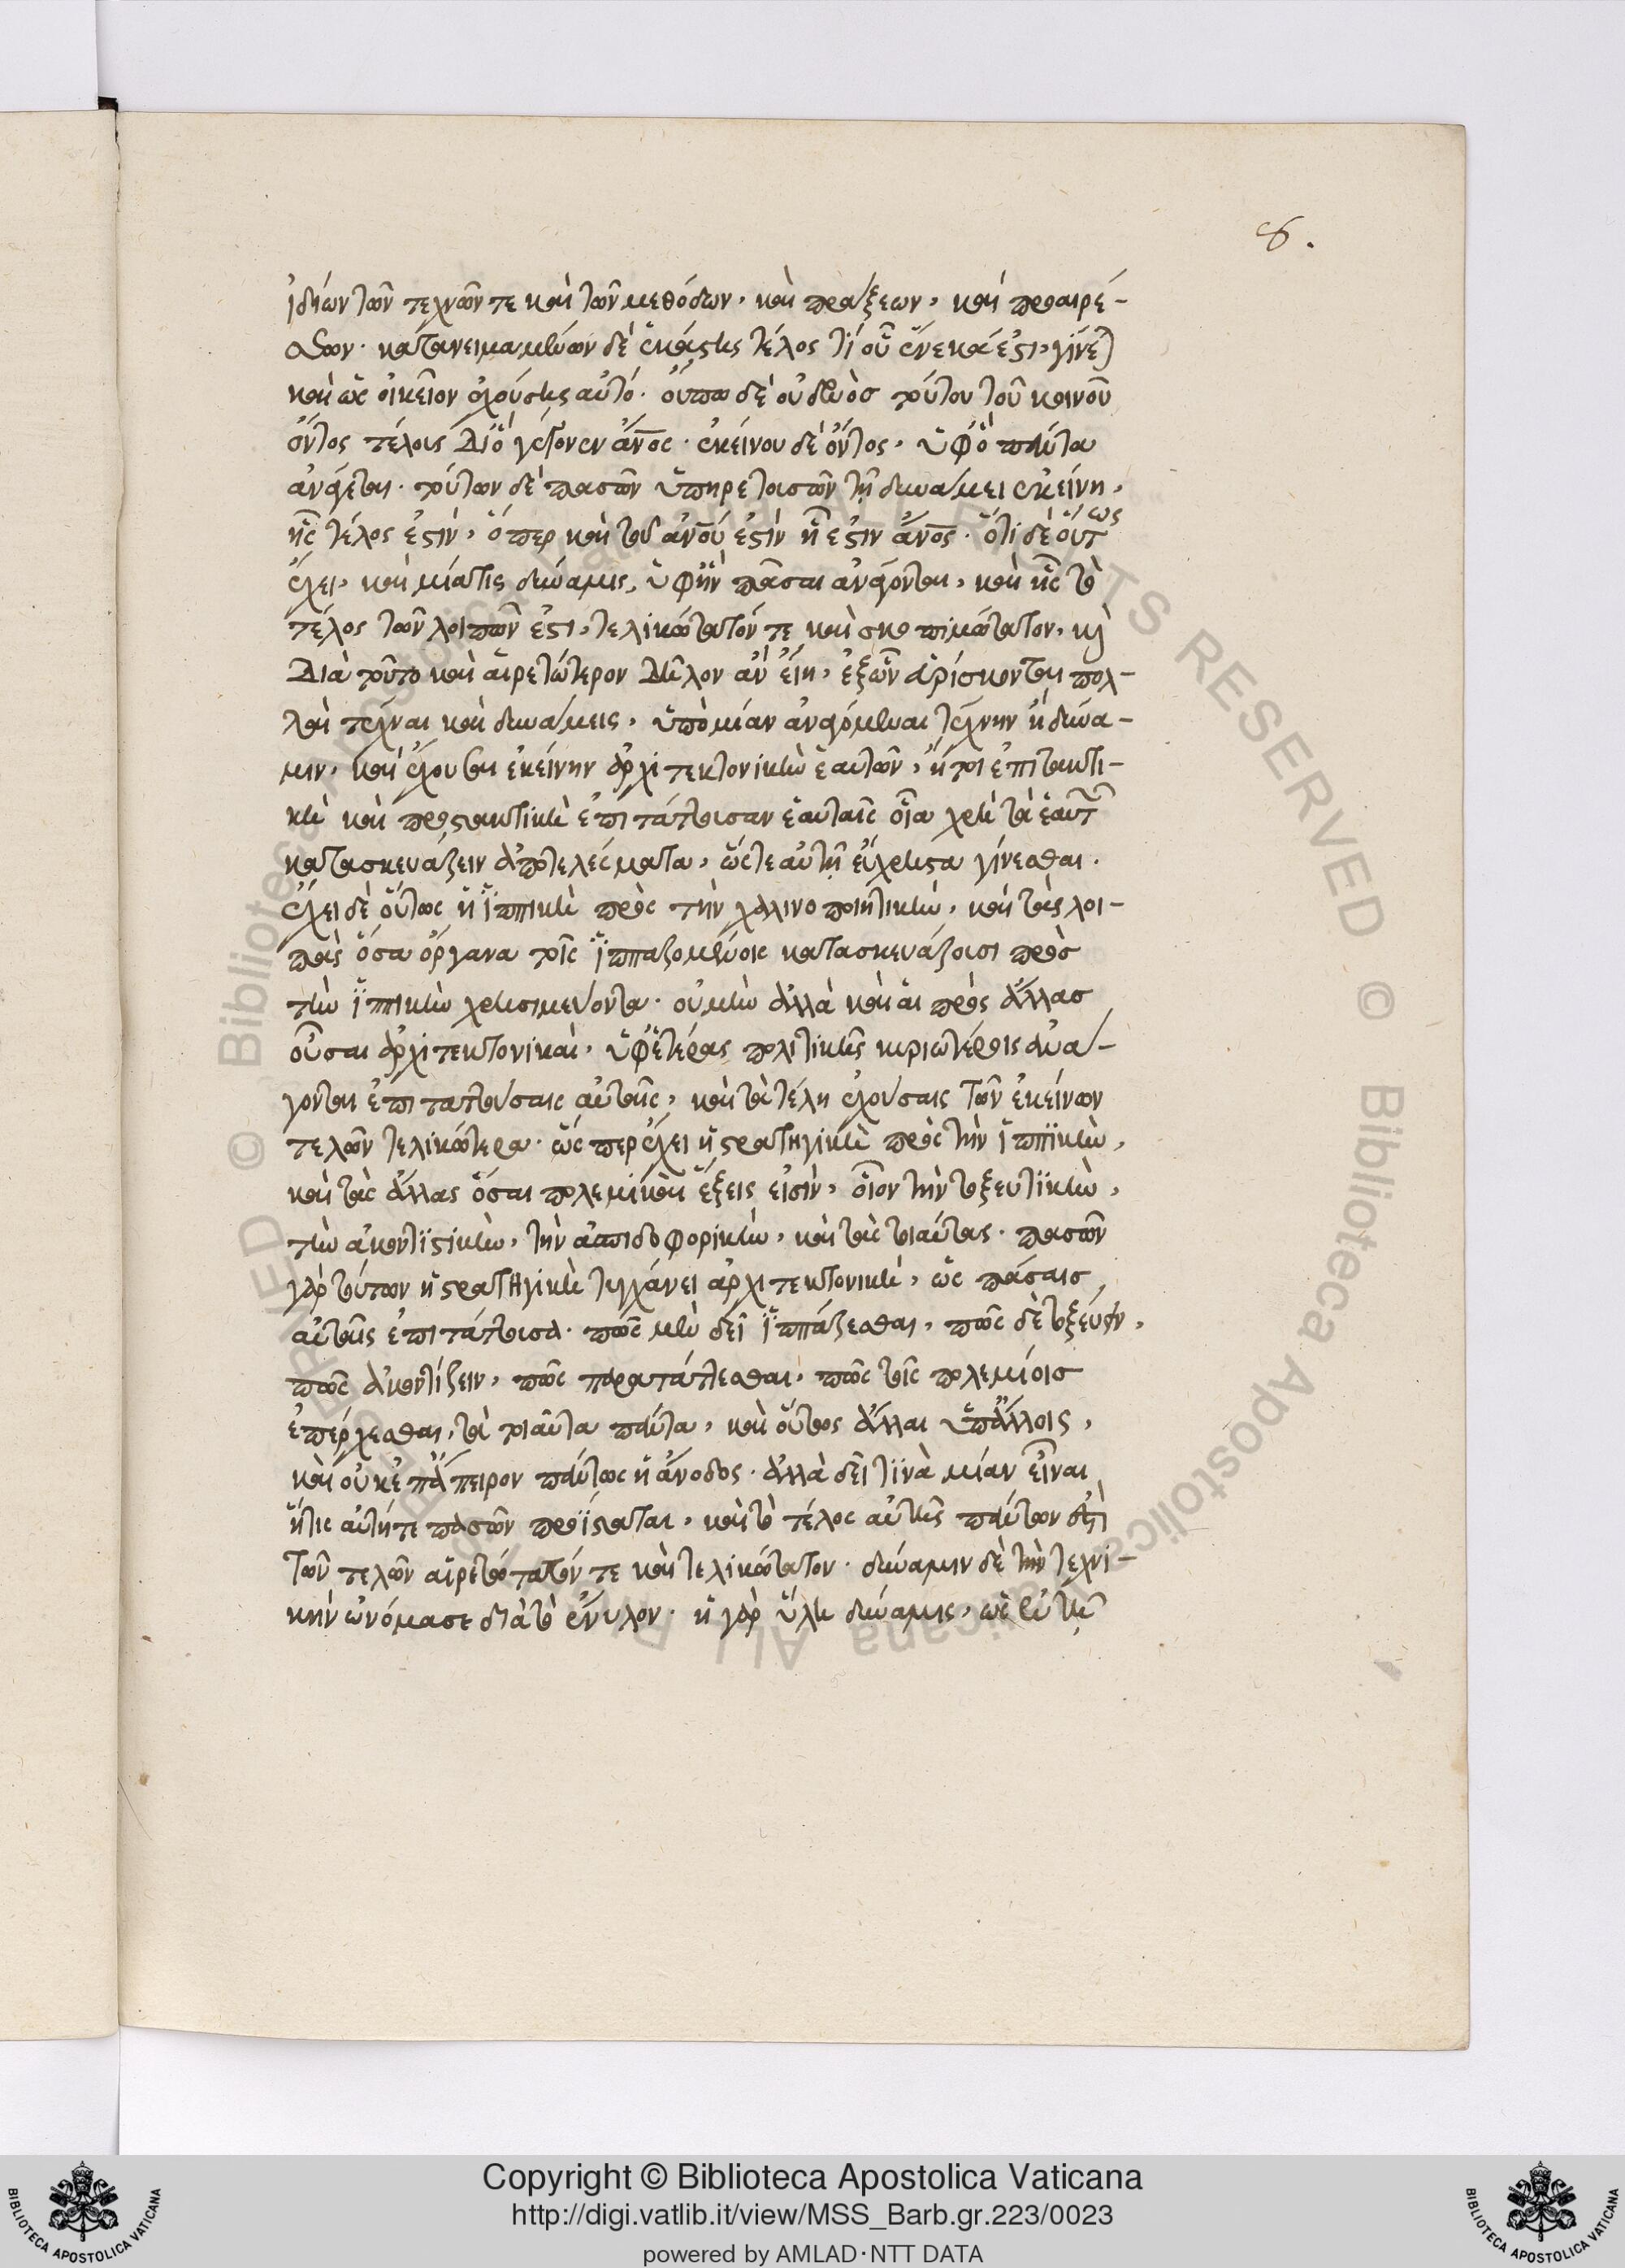 8.
ἰδίων τῶν τεχνῶν τε καὶ τῶν μεθόδων, καὶ πράξεων, καὶ προαιρέ-
σεων. κατανειμαμένων δὲ ἑκάστης τέλος τί οὗ ἕνεκά ἐστι, γίνεται
καὶ ὡς οἰκεῖον ἐχούσης αὐτό. οὔπω δὲ οὐδενὸς τούτου τοῦ κοινοῦ
ὄντος τέλους δι' ὃ γέγονεν ἄνος. ἐκείνου δὲ ὄντος, ὑφ' ὃ πάντα
ἀνάγεται. τούτων δὲ πασῶν ὑπηρετουσῶν τῇ δυνάμει ἐκείνῃ,
ἧς τέλος ἐστὶν, ὅπερ καὶ τοῦ ἀνου ἐστὶν ᾗ ἐστιν ἄνος. ὅτι δὲ οὕτως
ἔχει, καὶ μία τις δύναμις, ὑφ' ἣν πᾶσαι ἀνάγονται, καὶ ἧς τὸ
τέλος τῶν λοιπῶν ἐστι, τελικώτατόν τε καὶ σκοπιμώτατον, καὶ
διὰ τοῦτο καὶ αἱρετώτερον δῆλον ἂν εἴη, ἐξ ὧν εὑρίσκονται πολ-
λαὶ τέχναι καὶ δυνάμεις, ὑπὸ μίαν ἀναγόμεναι τέχνην ἢ δύνα-
μιν, καὶ ἔχουσαι ἐκείνην ἀρχιτεκτονικὴν ἑαυτῶν, ἤτοι ἐπιτακτι-
κὴ καὶ προστακτικὴ ἐπιτάττουσαν ἑαυταῖς οἷα χρὴ τὰ ἑαυτῶν
κατασκευάζειν ἀποτελέσματα, ὥστε αὐτῇ εὔχρηστα γίνεσθαι.
ἔχει δὲ οὕτως ἡ ἱππικὴ πρὸς τὴν χαλινοποιητικὴν, καὶ τὰς λοι-
πὰς ὅσα ὄργανα τοῖς ἱππαζομένοις κατασκευάζουσι πρὸς
τὴν ἱππικὴν χρησιμεύοντα. οὐ μὴν ἀλλὰ καὶ αἱ πρὸς ἄλλας
οὖσαι ἀρχιτεκτονικαὶ, ὑφ' ἑτέρας πολιτικῆς κυριωτέροις ἀνά-
γονται ἐπιταττούσαις αὐταῖς, καὶ τὰ τέλη ἐχούσαις τῶν ἐκείνων
τελῶν τελικώτερα. ὥσπερ ἔχει ἡ στρατηγικὴ πρὸς τὴν ἱππικὴν,
καὶ τὰς ἄλλας ὅσαι πολεμικαὶ ἕξεις εἰσὶν, οἷον τὴν τοξευτικὴν,
τὴν ἀκοντιστικὴν, τὴν ἀσπιδοφορικὴν, καὶ τὰς τοιαύτας. πασῶν
γὰρ τούτων ἡ στρατηγικὴ τυγχάνει ἀρχιτεκτονικὴ, ὡς πάσαις
αὐταῖς ἐπιτάττουσα. πῶς μὲν δεῖ ἱππάζεσθαι, πῶς δὲ τοξεύειν,
πῶς ἀκοντίζειν, πῶς παρατάττεσθαι, πῶς τοῖς πολεμίοις
ἐπέρχεσθαι, τὰ τοιαῦτα πάντα, καὶ οὕτως ἄλλαι ὑπ' ἄλλοις,
καὶ οὐκ ἐπ' ἄπειρον πάντως ἡ ἄνοδος. ἀλλὰ δεῖ τινὰ μίαν εἶναι
ἥτις αὐτή τε πασῶν προΐσταται, καὶ τὸ τέλος αὐτῆς πάντων ἐστὶ
τῶν τελῶν αἱρετώτατόν τε καὶ τελικώτατον. δύναμιν δὲ τὴν τεχνι-
κὴν ὠνόμασε διὰ τὸ ἔνυλον. ἡ γὰρ ὕλη δύναμις, ὡς ἐν τῇ
Copyright © Biblioteca Apostolica Vaticana
http://digi.vatlib.it/view/MSS_Barb.gr.223/0023
powered by AMLAD·NTT DATA